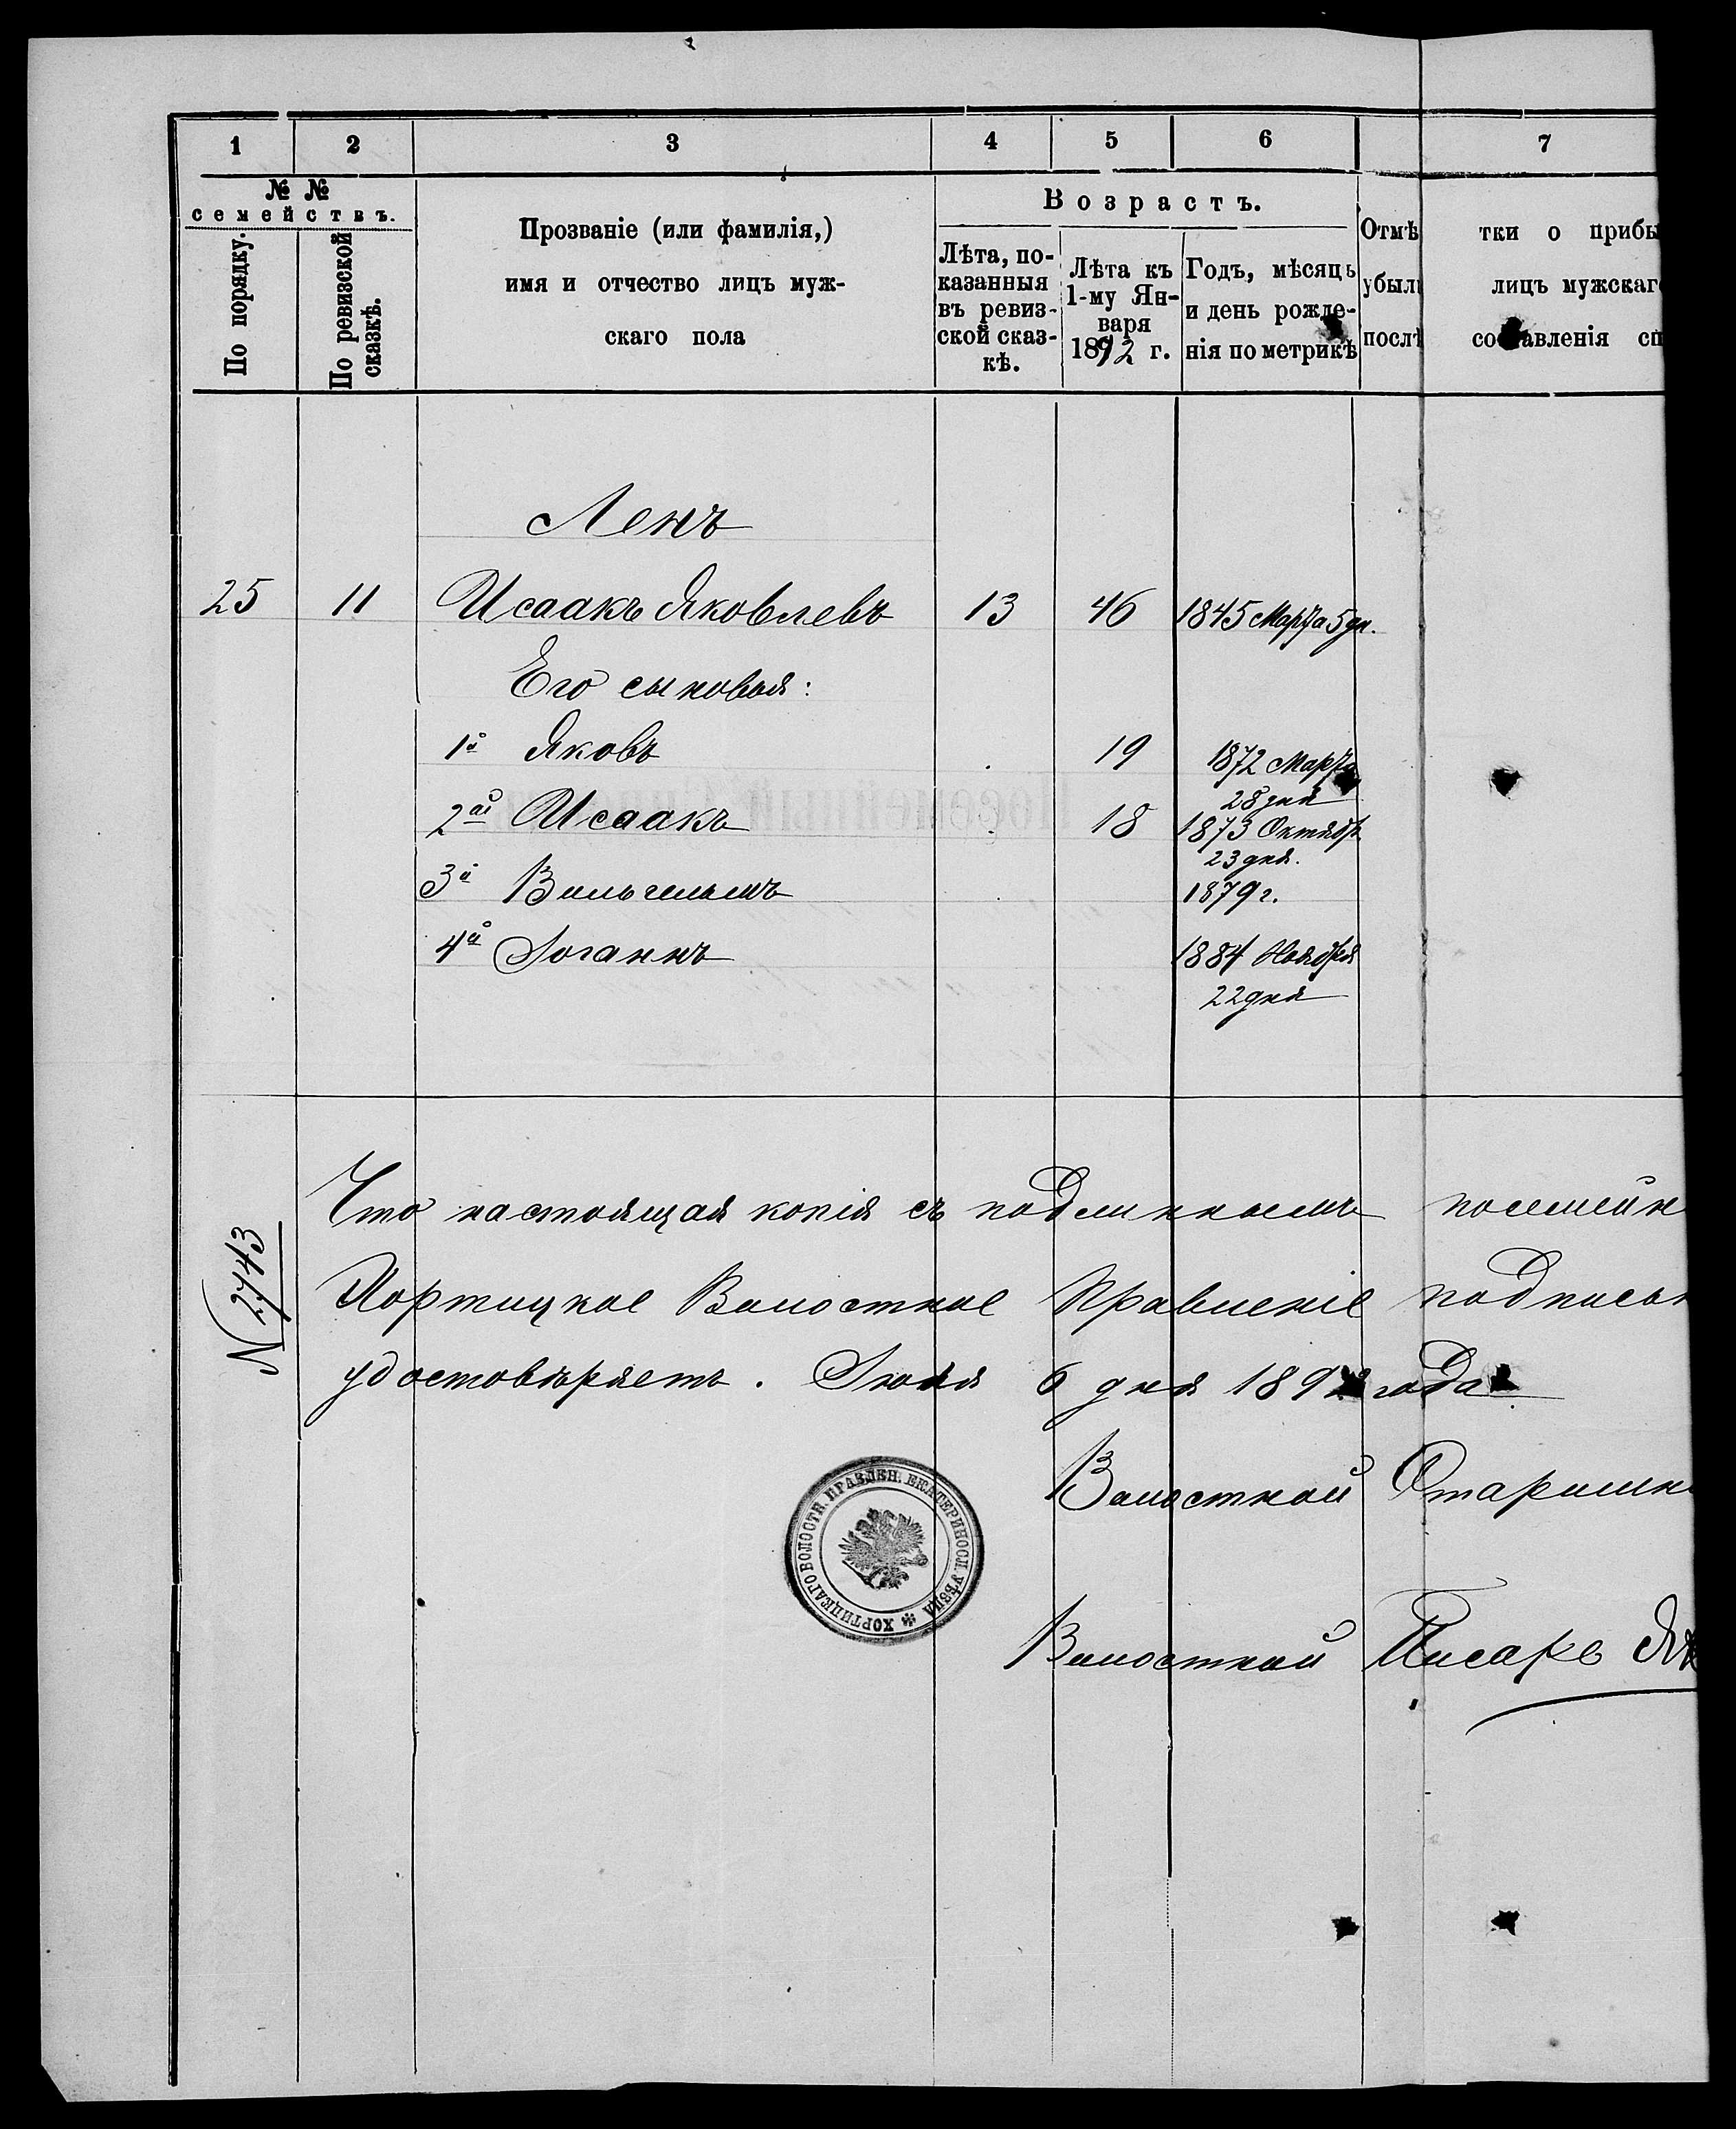 1 2 3 4 5 6 7
№ №
семействъ.
По порядку.
По ревизской сказкѣ.
Прозваніе (или фамилія,)
имя и отчество лицъ муж-
скаго пола
Возрастъ.
Лѣта, по-
казанныя
въ ревиз-
ской сказ-
кѣ.
Лѣта къ
1-му Ян-
варя
1892 г.
Годъ, мѣсяцъ
и день рожде-
нія по метрикѣ
Отмѣтки о прибы
убыл лицъ мужскаго
послѣ составленія сп
Ленъ
25 11 Исаакъ Яковлевъ 13 46 1845 Марта 5 дн.
Его сыновья:
1й Яковъ 19 1872 Марта
28 дня
2ой Исаакъ 18 1873 Октябр.
23 дня.
3й Вильгельмъ 1879 г.
4й Іоганнъ 1884 Ноября
22 дня
Что настоящая копія съ подлиннымъ посемейн
N 2743
Хортицкое Волостное Правленіе подписью
удостовѣряетъ. 6 дня 1892 года
Волостной Старшин
Волостной Писарь Як
ХОРТИЦКАГО ВОЛОСТН. ПРАВЛЕН. ЕКАТЕРИНОСЛ. УѢЗДА